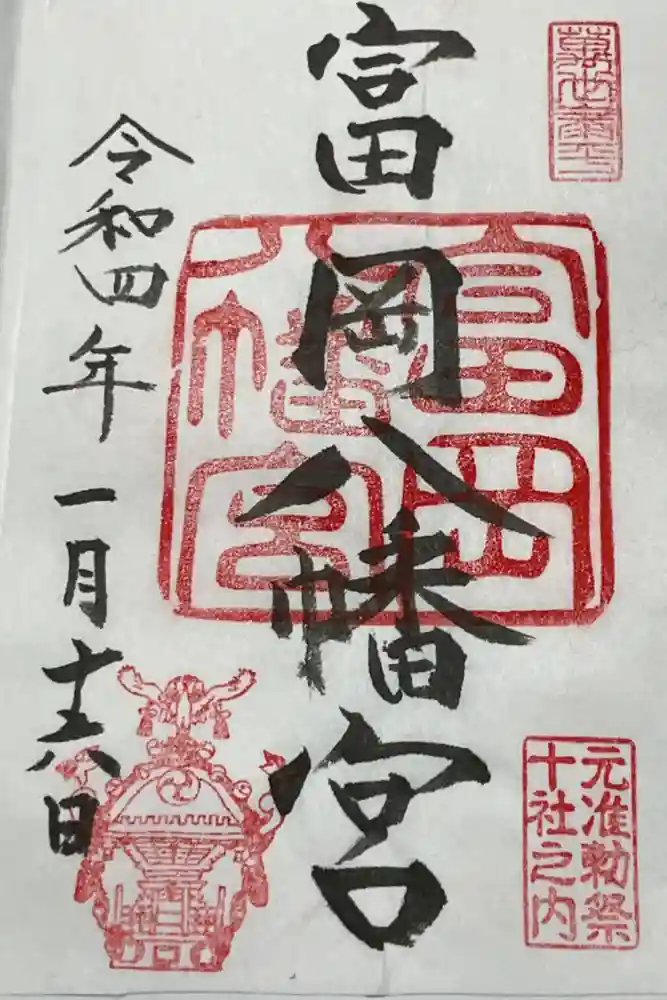 富岡八幡宮
富岡
八幡宮
元准勅祭
十社之内
令和四年一月十六日